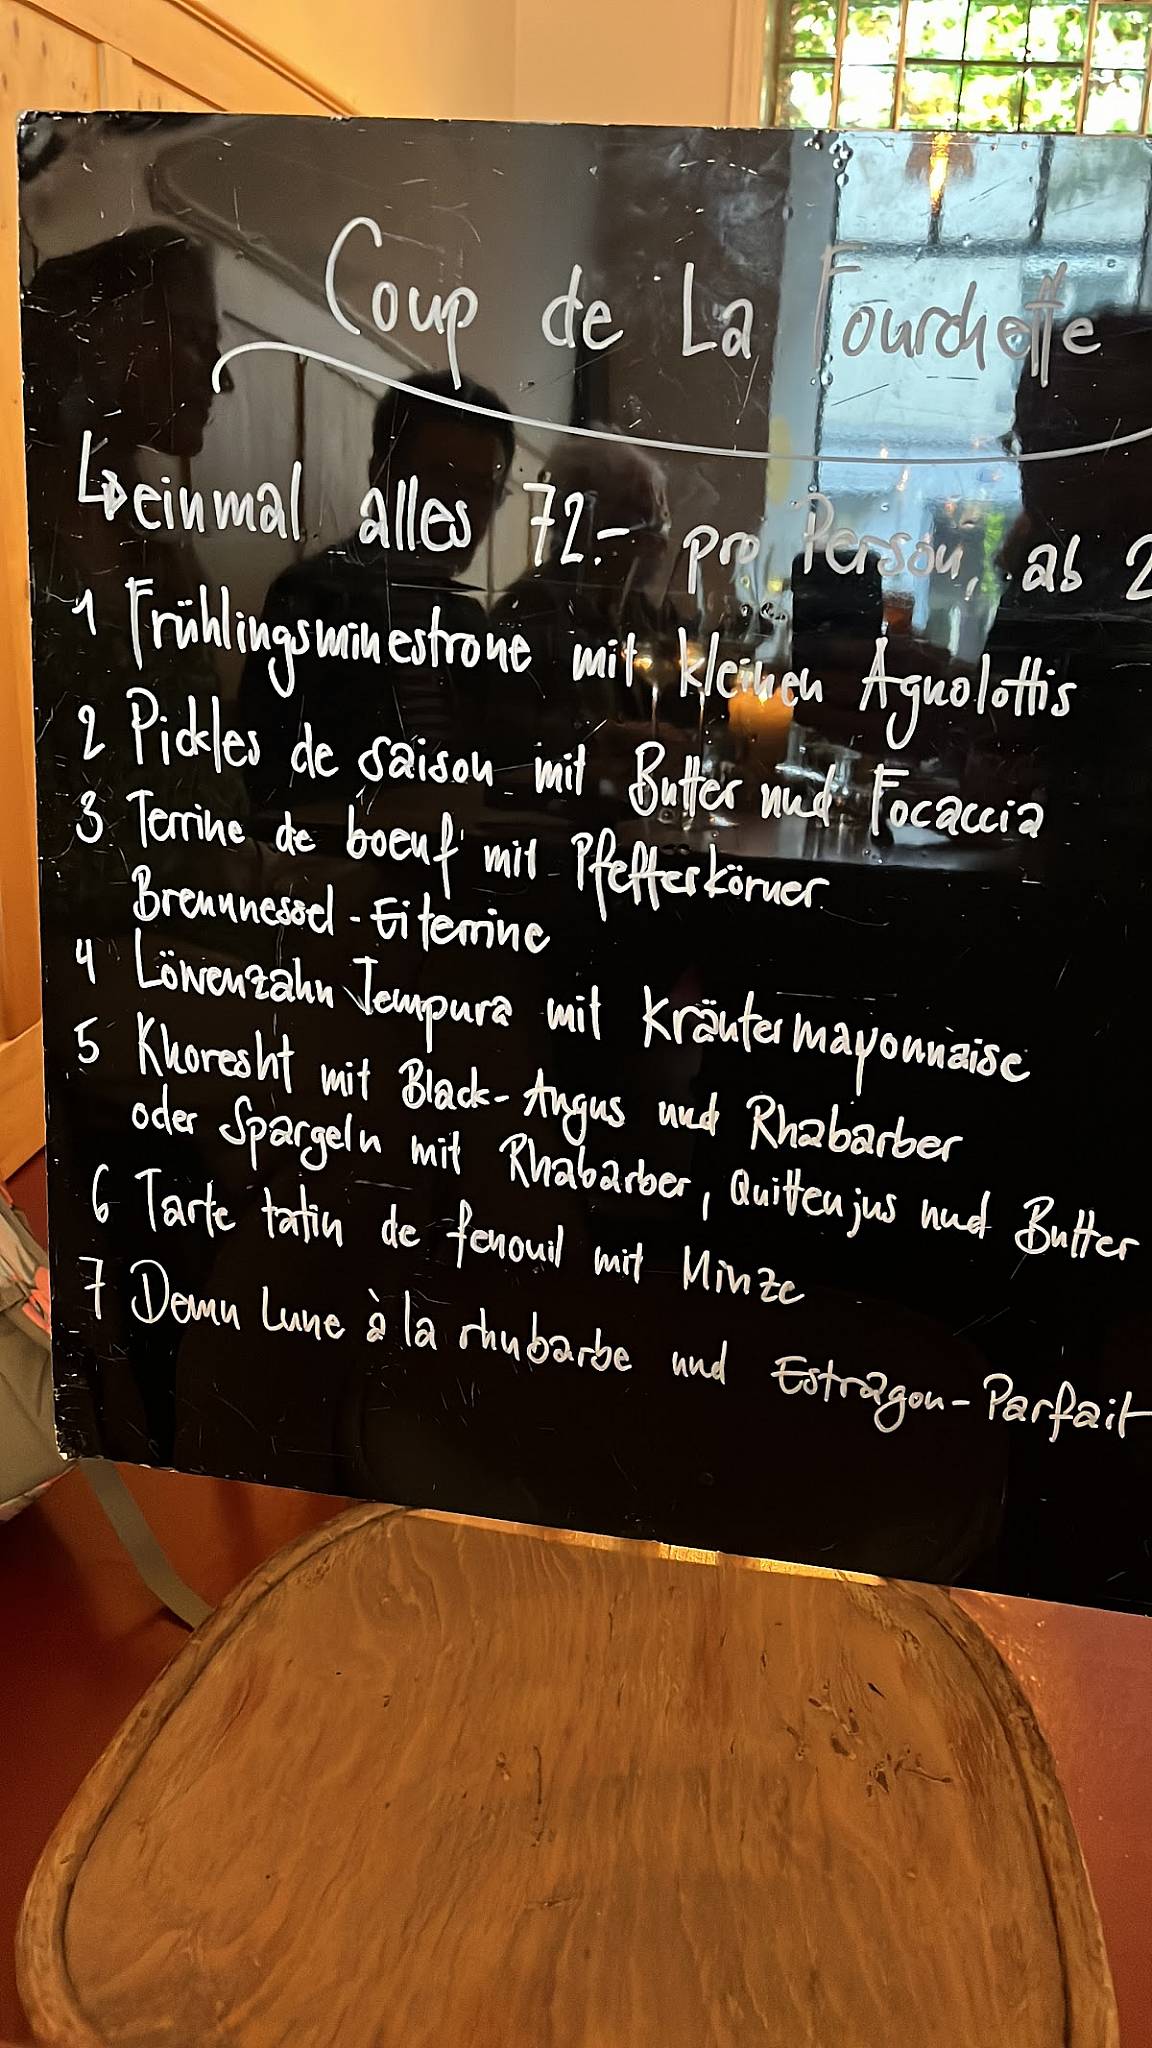 Coup de La Fourchette
einmal alles 72.- pro Person, ab 2
1 Frühlingsminestrone mit kleinen Agnolottis
2 Pickles de saison mit Butter und Focaccia
3 Terrine de boeuf mit Pfefferkörner
Brennnessel-Eiterrine
4 Löwenzahn Tempura mit Kräutermayonnaise
5 Khoresht mit Black-Angus und Rhabarber
oder Spargeln mit Rhabarber, Quittenjus und Butter
6 Tarte tatin de fenouil mit Minze
7 Demn Lune à la rhubarbe und Estragon-Parfait